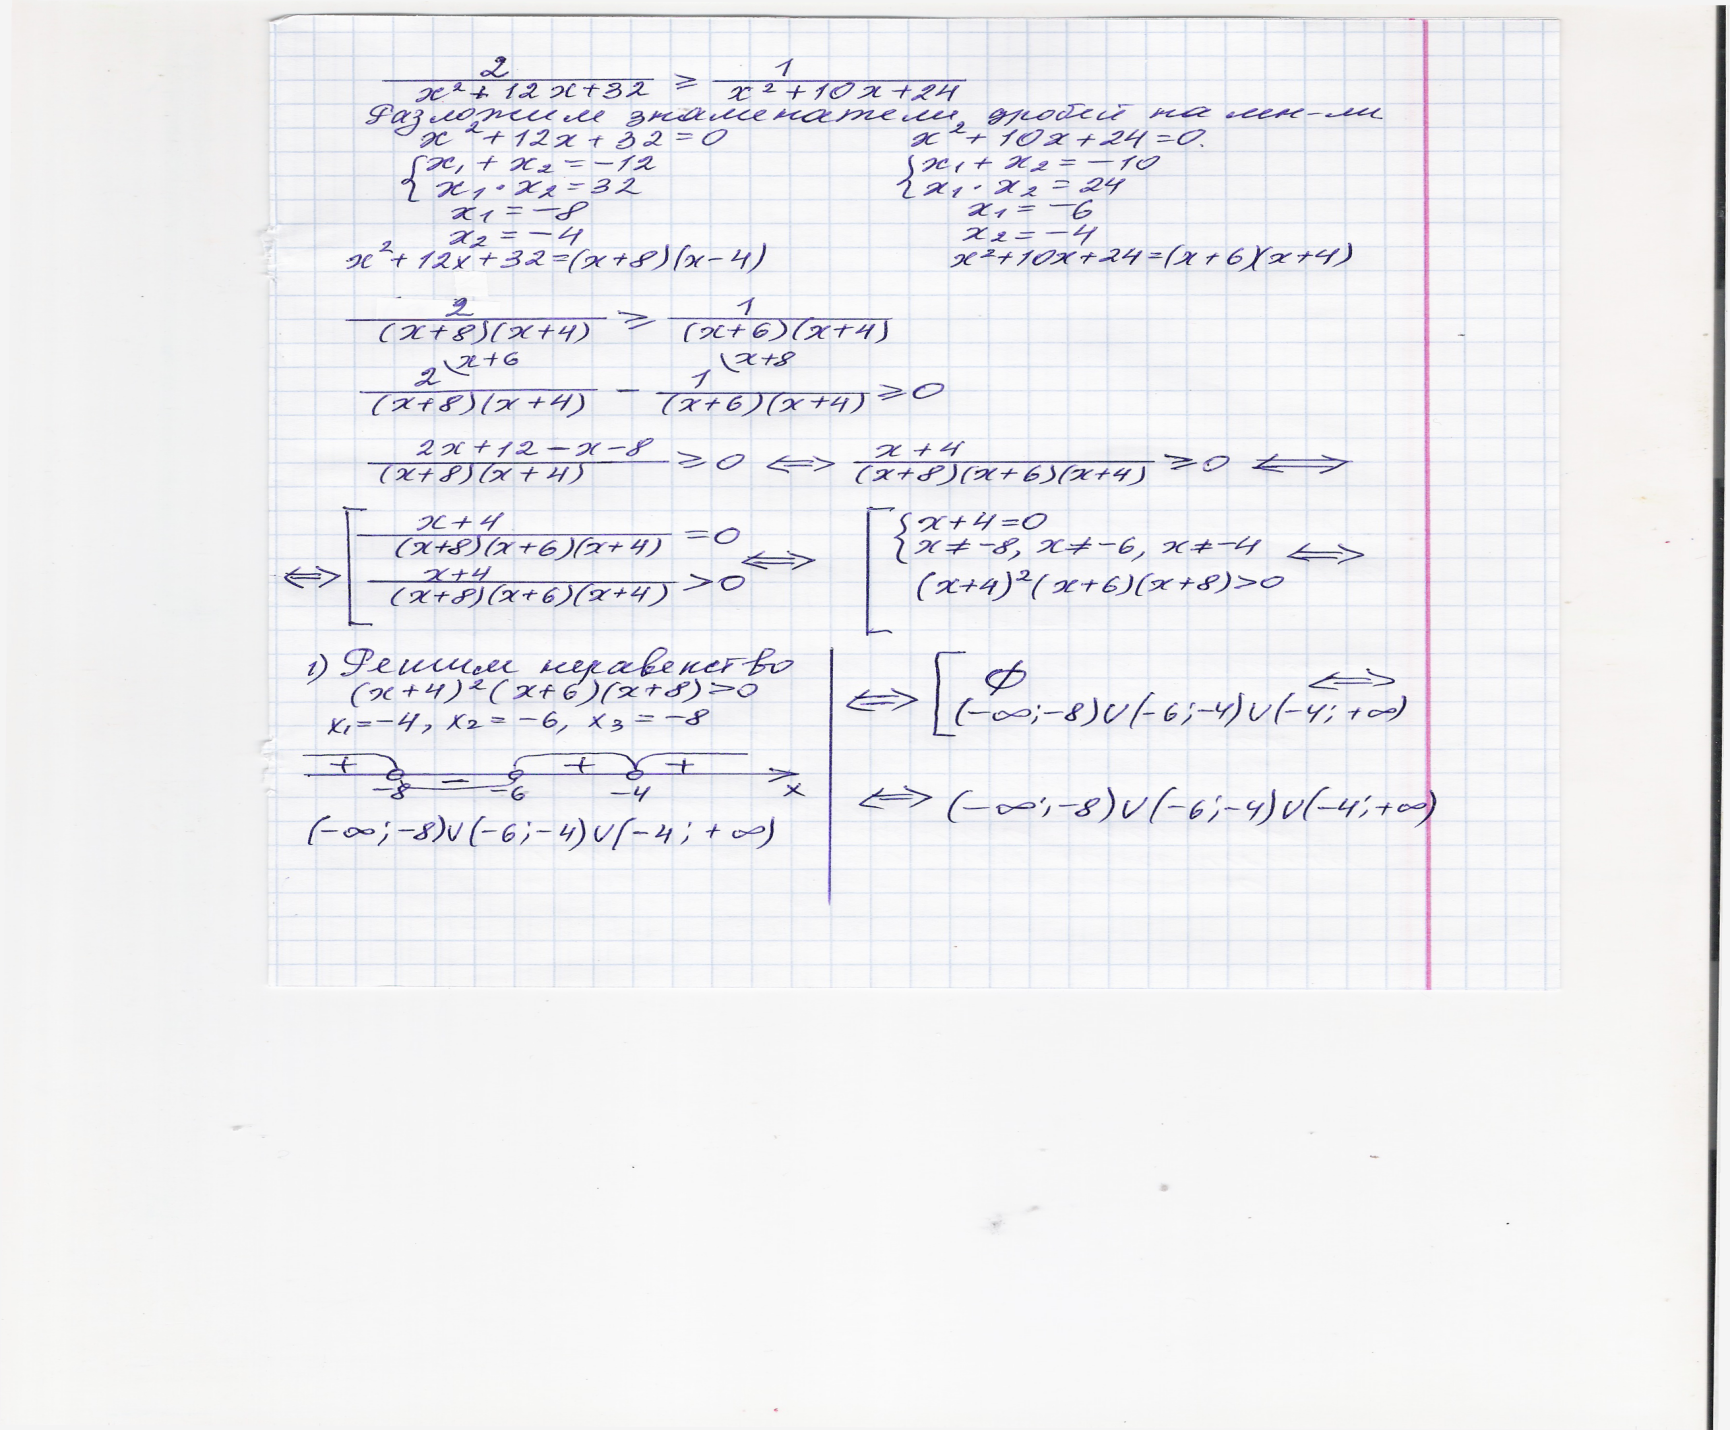 2/(x²+12x+32) ≥ 1/(x²+10x+24)
Разложим знаменатели дробей на мн-ли
x²+12x+32=0    x²+10x+24=0.
{x₁+x₂=-12    {x₁+x₂=-10
x₁·x₂=32    x₁·x₂=24
x₁=-8    x₁=-6
x₂=-4    x₂=-4
x²+12x+32=(x+8)(x-4)    x²+10x+24=(x+6)(x+4)
2/((x+8)(x+4)) ≥ 1/((x+6)(x+4))
2\x+6/((x+8)(x+4)) - 1\x+8/((x+6)(x+4)) ≥ 0
(2x+12-x-8)/((x+8)(x+4)) ≥ 0 ⇔ (x+4)/((x+8)(x+6)(x+4)) ≥ 0 ⇔
⇔ [(x+4)/((x+8)(x+6)(x+4)) = 0 ⇔ [{x+4=0
x≠-8, x≠-6, x≠-4 ⇔
(x+4)/((x+8)(x+6)(x+4)) > 0    (x+4)²(x+6)(x+8)>0
1) Решим неравенство
(x+4)²(x+6)(x+8)>0
x₁=-4, x₂=-6, x₃=-8
+ - + +
-8 -6 -4 x
(-∞;-8)∪(-6;-4)∪(-4;+∞)
⇔ [∅ ⇔
(-∞;-8)∪(-6;-4)∪(-4;+∞)
⇔ (-∞;-8)∪(-6;-4)∪(-4;+∞)